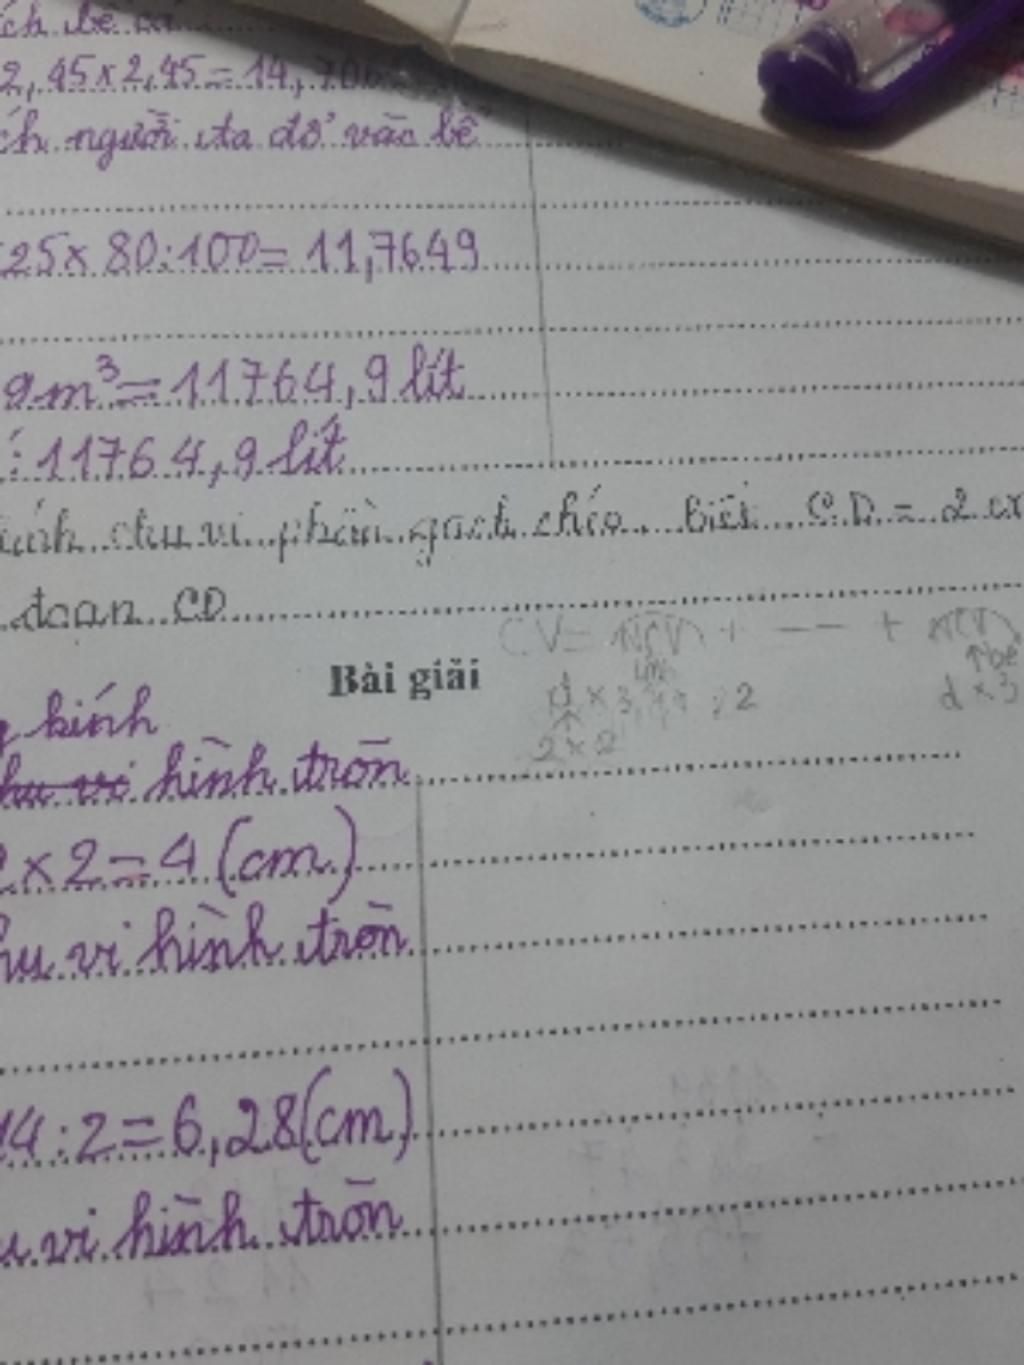 ích bể cá
2,45 x 2,45 = 14,706
ích người ta đổ vào bể
25 x 80 : 100 = 11,7649
9m³ = 11764,9 lít
: 11764,9 lít
tính chu vi phần gạch chéo biết CD = 2 cm
đoạn CD
CV = NCV + — — + NCV
Bài giải
lớn
bé
d x 3,14 : 2
d x 3
2 x 2
kính
hu vi hình tròn
2 x 2 = 4 (cm)
hu vi hình tròn
14 : 2 = 6,28 (cm)
u vi hình tròn